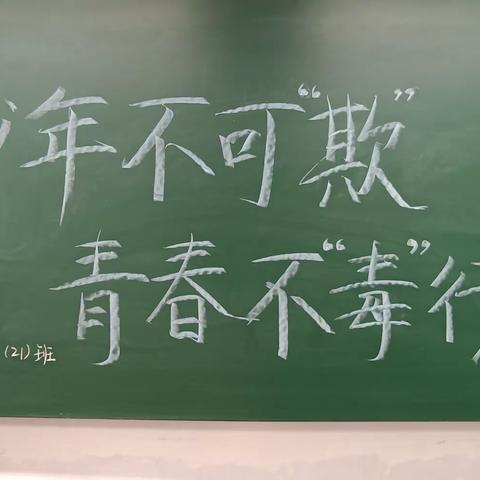 年不可“欺”
青春不“毒”行
(21)班